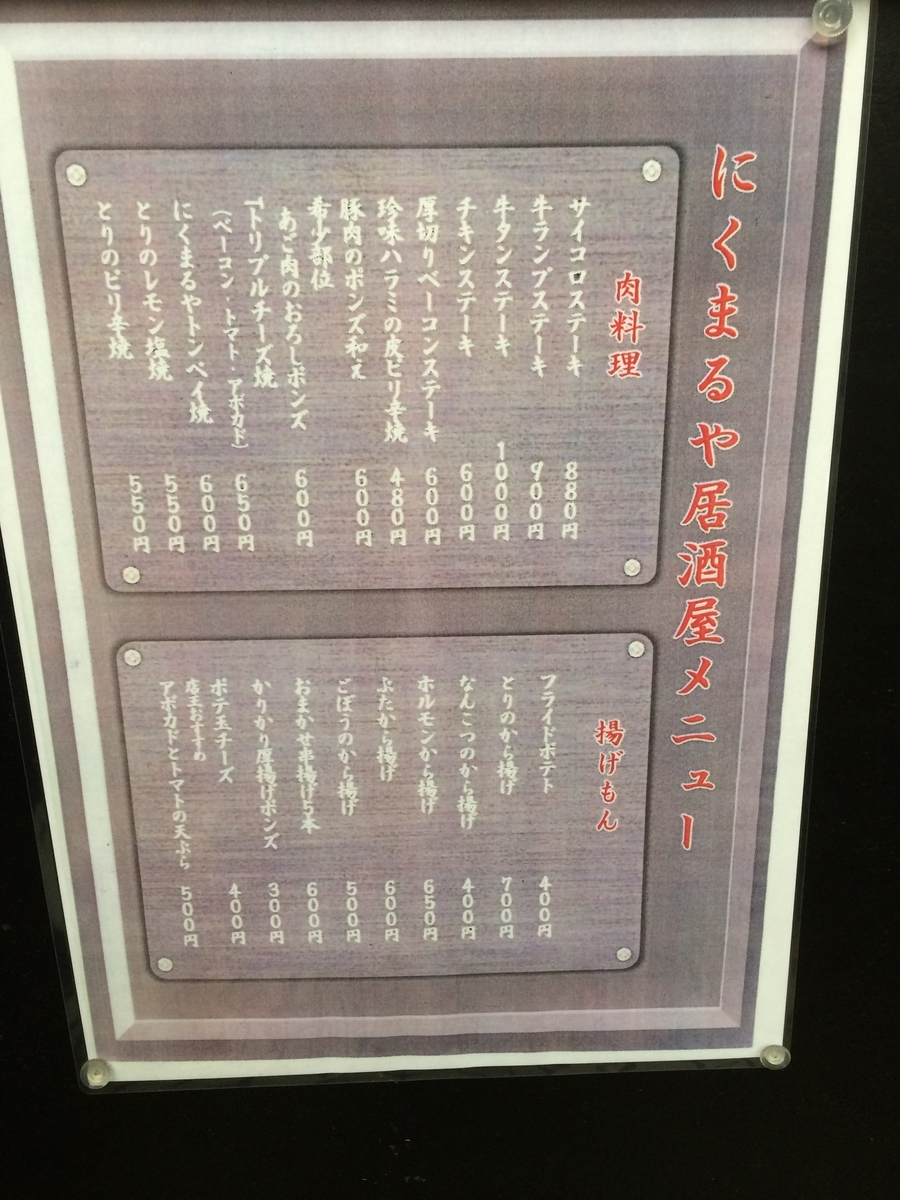 にくまるや居酒屋メニュー
肉料理
サイコロステーキ 880円
牛ランプステーキ 900円
牛タンステーキ 1000円
チキンステーキ 600円
厚切りベーコンステーキ 600円
珍味ハラミの炙ピリ辛焼 480円
豚肉のポンズ和え 600円
希少部位
あご肉のおろしポンズ 600円
『トリプルチーズ焼 650円
(ベーコン・トマト・アボカド)
にくまるやトンペイ焼 600円
とりのレモン塩焼 550円
とりのピリ辛焼 550円
揚げもん
フライドポテト 400円
とりのから揚げ 700円
なんこつのから揚げ 400円
ホルモンから揚げ 650円
ぶたから揚げ 600円
ごぼうのから揚げ 500円
おまかせ串揚げ5本 600円
かりかり厚揚げポンズ 300円
ポテ玉チーズ 400円
店主おすすめ
アボカドとトマトの天ぷら 500円